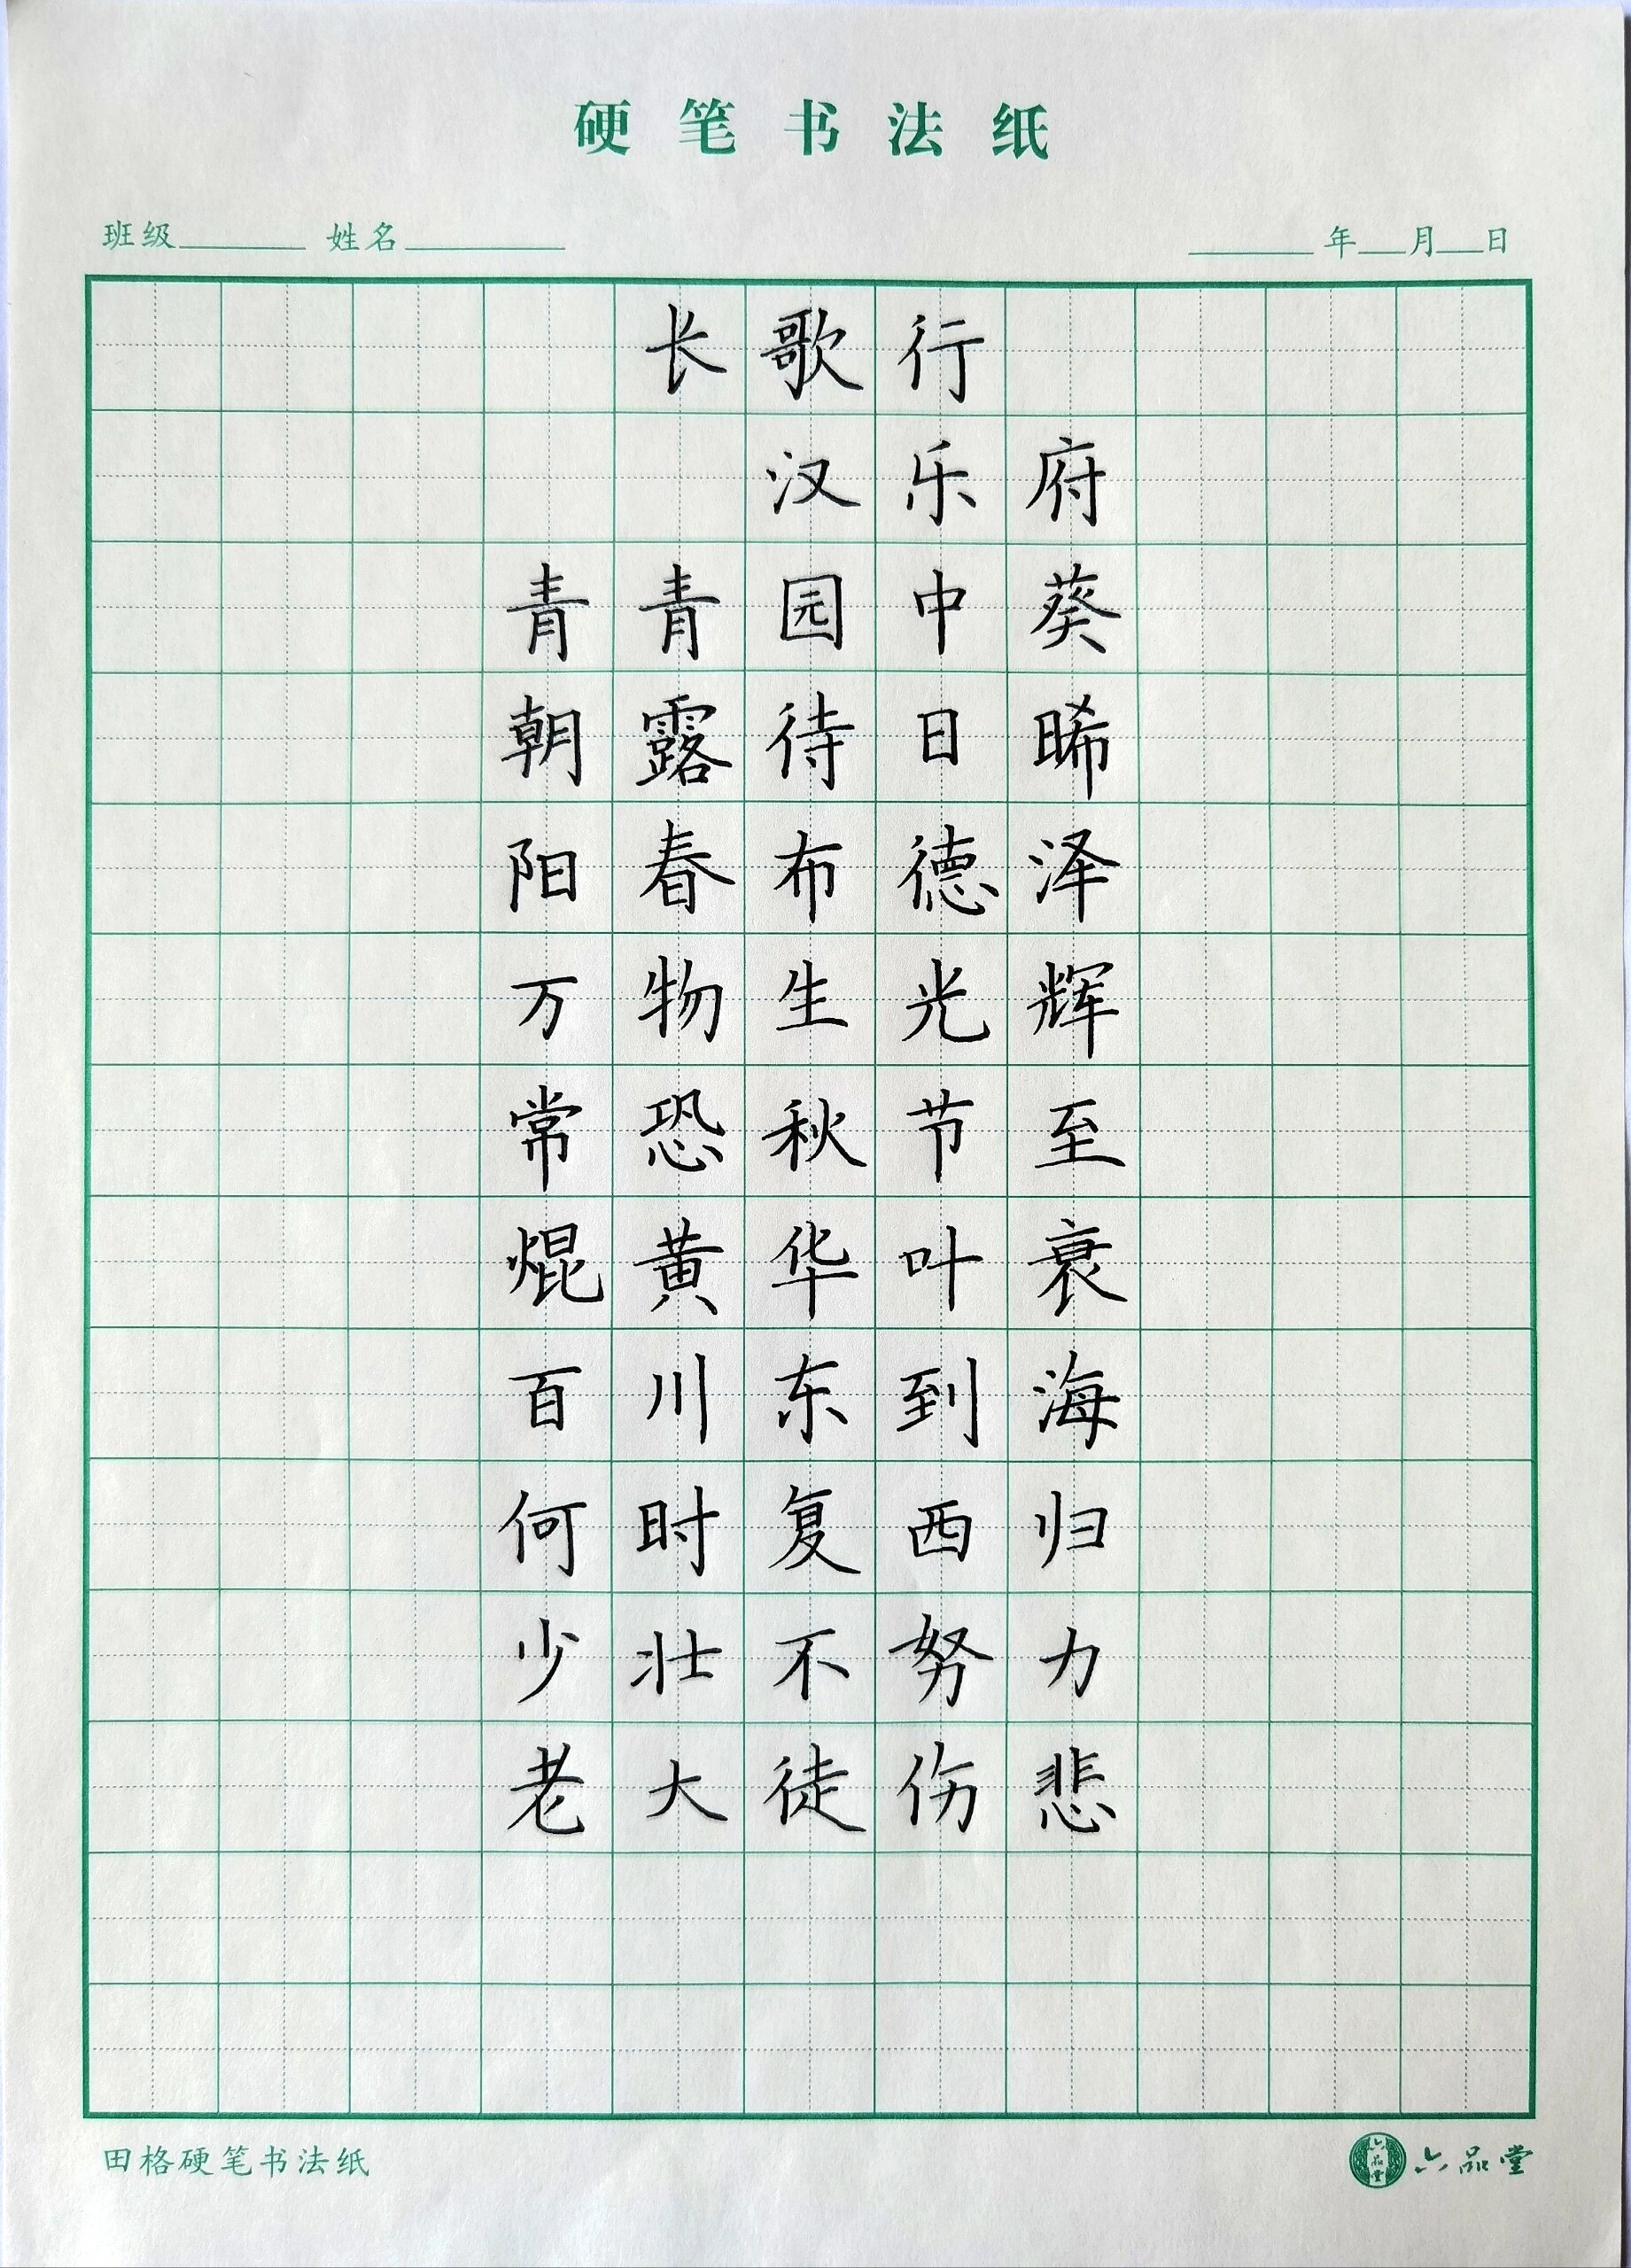 硬笔书法纸
班级 姓名 年 月 日
长歌行
汉乐府
青青园中葵
朝露待日晞
阳春布德泽
万物生光辉
常恐秋节至
焜黄华叶衰
百川东到海
何时复西归
少壮不努力
老大徒伤悲
田格硬笔书法纸
六品堂 六品堂